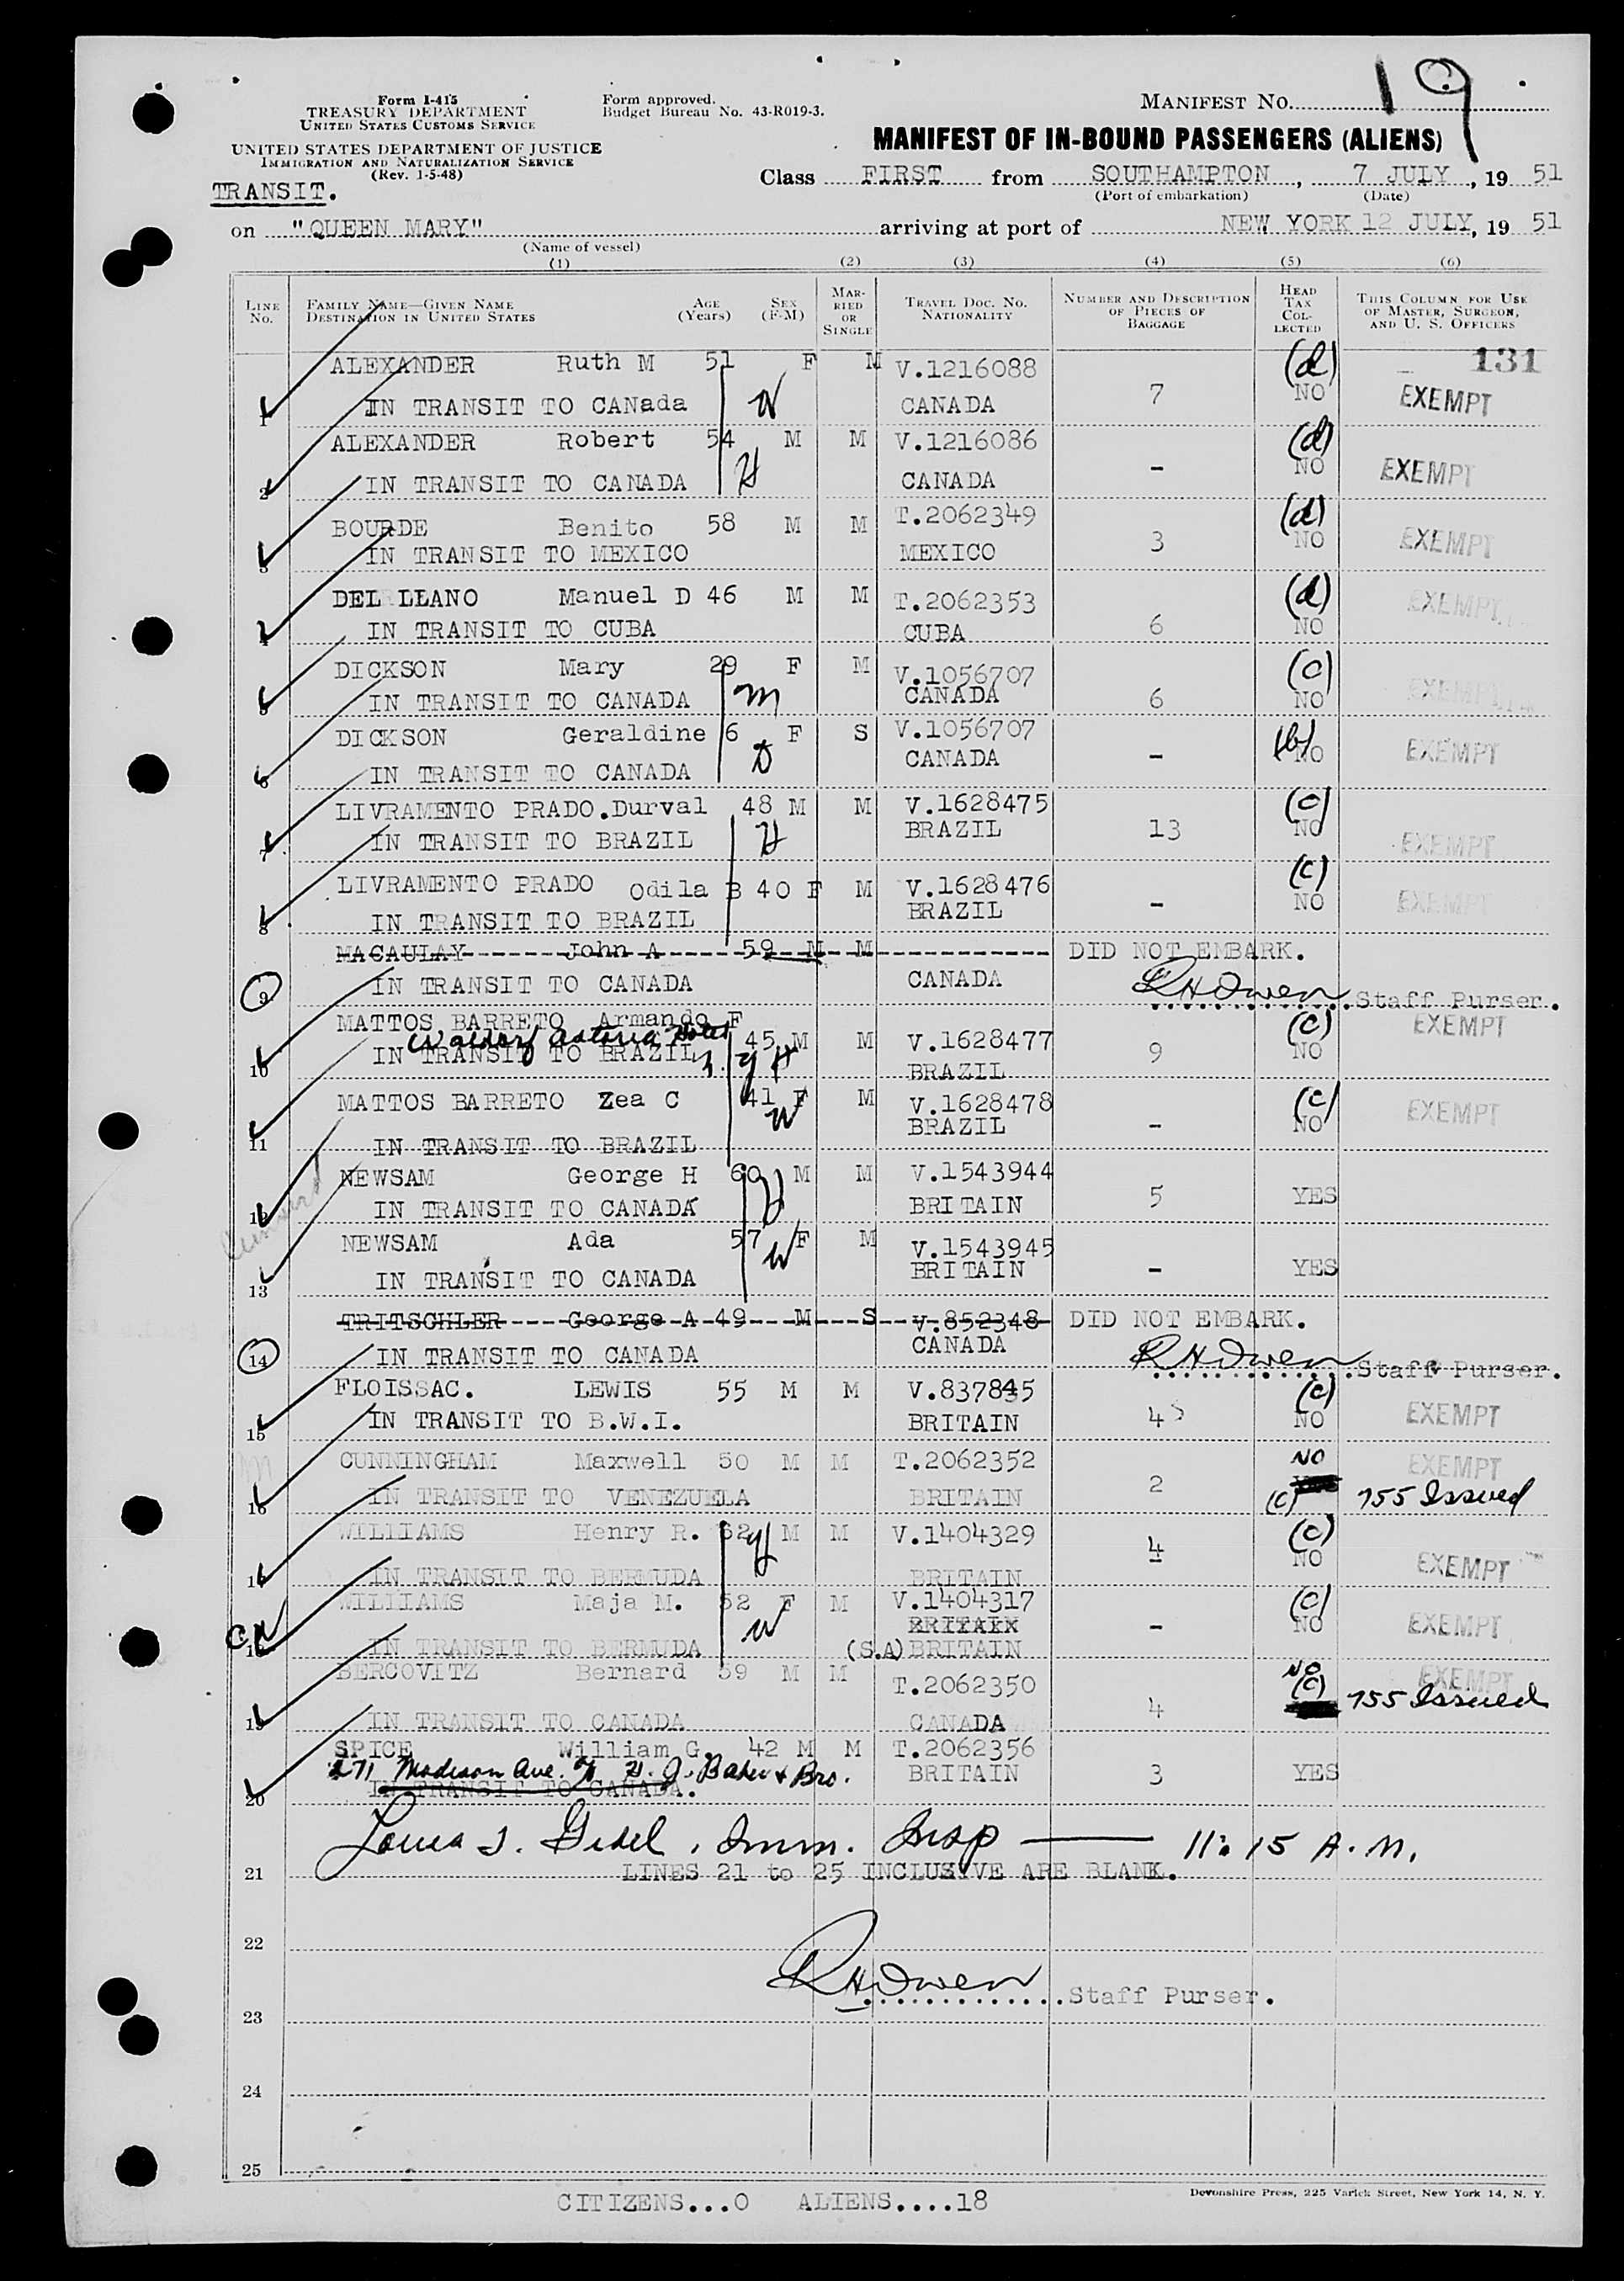 19
Form I-415
TREASURY DEPARTMENT
UNITED STATES CUSTOMS SERVICE
UNITED STATES DEPARTMENT OF JUSTICE
IMMIGRATION AND NATURALIZATION SERVICE
(Rev. 1-5-48)
Form approved.
Budget Bureau No. 43-R019-3.
MANIFEST NO.
MANIFEST OF IN-BOUND PASSENGERS (ALIENS)
TRANSIT.
Class FIRST from SOUTHAMPTON, 7 JULY, 19 51
(Port of embarkation) (Date)
on "QUEEN MARY" arriving at port of NEW YORK 12 JULY, 19 51
(Name of vessel)
(1) (2) (3) (4) (5) (6)
LINE No. FAMILY NAME—GIVEN NAME DESTINATION IN UNITED STATES AGE (Years) SEX (F-M) MARRIED OR SINGLE TRAVEL DOC. NO. NATIONALITY NUMBER AND DESCRIPTION OF PIECES OF BAGGAGE HEAD TAX COLLECTED THIS COLUMN FOR USE OF MASTER, SURGEON, AND U. S. OFFICERS
131
ALEXANDER Ruth M 51 F M V.1216088 (d)
1 IN TRANSIT TO CANada W CANADA 7 NO EXEMPT
ALEXANDER Robert 54 M M V.1216086 (d)
2 IN TRANSIT TO CANADA H CANADA - NO EXEMPT
BOURDE Benito 58 M M T.2062349 (d)
3 IN TRANSIT TO MEXICO MEXICO 3 NO EXEMPT
DEL LLANO Manuel D 46 M M T.2062353 (d)
4 IN TRANSIT TO CUBA CUBA 6 NO EXEMPT
DICKSON Mary 29 F M V.1056707 (c)
5 IN TRANSIT TO CANADA m CANADA 6 NO EXEMPT
DICKSON Geraldine 6 F S V.1056707 (b)
6 IN TRANSIT TO CANADA D CANADA - NO EXEMPT
LIVRAMENTO PRADO.Durval 48 M M V.1628475 (c)
7 IN TRANSIT TO BRAZIL H BRAZIL 13 NO EXEMPT
LIVRAMENTO PRADO Odila B 40 F M V.1628476 (c)
8 IN TRANSIT TO BRAZIL BRAZIL - NO EXEMPT
MACAULAY John A 59 M M DID NOT EMBARK.
9 IN TRANSIT TO CANADA CANADA RHOwen Staff Purser.
MATTOS BARRETO Armando F (c) EXEMPT
Waldorf Astoria Hotel N.Y
10 IN TRANSIT TO BRAZIL 45 M M V.1628477 BRAZIL 9 NO
MATTOS BARRETO Zea C 41 F M V.1628478 (c)
11 IN TRANSIT TO BRAZIL W BRAZIL - NO EXEMPT
NEWSAM George H 60 M M V.1543944
12 IN TRANSIT TO CANADA H BRITAIN 5 YES
NEWSAM Ada 57 F M V.1543945
13 IN TRANSIT TO CANADA W BRITAIN - YES
TRITSCHLER George A 49 M S V.852348 DID NOT EMBARK.
14 IN TRANSIT TO CANADA CANADA RHOwen Staff Purser.
FLOISSAC. LEWIS 55 M M V.837845 (c)
15 IN TRANSIT TO B.W.I. BRITAIN 4 NO EXEMPT
CUNNINGHAM Maxwell 50 M M T.2062352 NO EXEMPT
16 IN TRANSIT TO VENEZUELA BRITAIN 2 (c) 755 Issued
WILLIAMS Henry R. 62 M M V.1404329 (c)
17 IN TRANSIT TO BERMUDA H BRITAIN 4 NO EXEMPT
WILLIAMS Maja M. 52 F M V.1404317 (c)
BRITAIN
18 IN TRANSIT TO BERMUDA W (S.A) BRITAIN - NO EXEMPT
BERCOVITZ Bernard 59 M M T.2062350 NO (c) EXEMPT
19 IN TRANSIT TO CANADA CANADA 4 755 Issued
SPICE William G. 42 M M T.2062356
271 Madison Ave. c/o H. J. Baker & Bro.
20 IN TRANSIT TO CANADA. BRITAIN 3 YES
Imm. Insp — 11:15 A.M.
21 LINES 21 to 25 INCLUSIVE ARE BLANK.
22
RHOwen Staff Purser.
23
24
25
CITIZENS...0 ALIENS....18
Devonshire Press, 225 Varick Street, New York 14, N. Y.